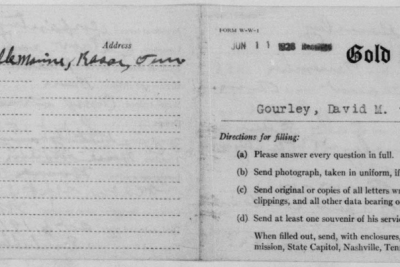 Address
FORM W-W-1
JUN 11 1928
Gold
Gourley, David M.
Directions for filling:
(a) Please answer every question in full.
(b) Send photograph, taken in uniform, if
(c) Send original or copies of all letters w
clippings, and all other data bearing o
(d) Send at least one souvenir of his servic
When filled out, send, with enclosures,
mission, State Capitol, Nashville, Ten